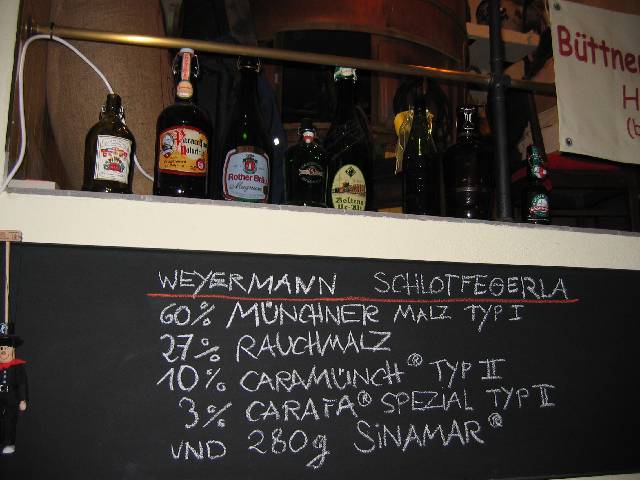 Büttner
H
Rother Bräu
Magnum
Bolten
Ur-Alt
WEYERMANN SCHLOTFEGERLA
60% MÜNCHNER MALZ TYP I
27% RAUCHMALZ
10% CARAMÜNCH® TYP II
3% CARAFA® SPEZIAL TYP II
UND 280g SINAMAR®